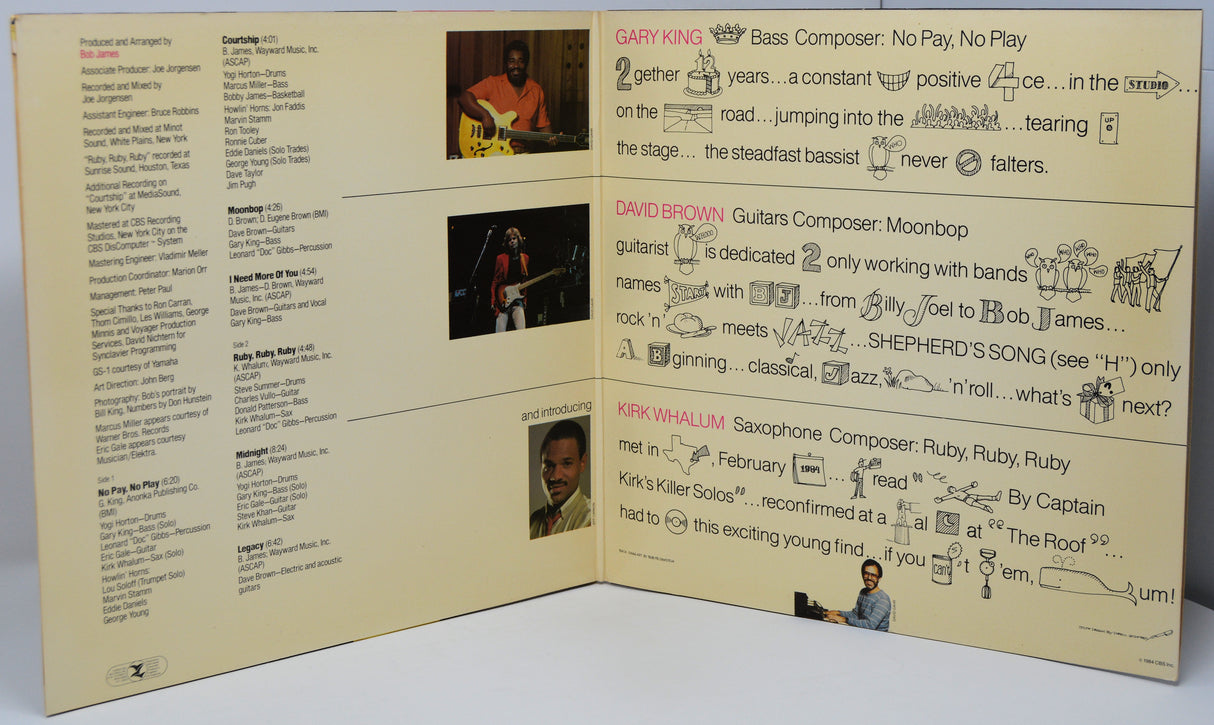 Produced and Arranged by
Bob James
Associate Producer: Joe Jorgensen
Recorded and Mixed by
Joe Jorgensen
Assistant Engineer: Bruce Robbins
Recorded and Mixed at Minot
Sound, White Plains, New York
"Ruby, Ruby, Ruby" recorded at
Sunrise Sound, Houston, Texas
Additional Recording on
"Courtship" at MediaSound,
New York City
Mastered at CBS Recording
Studios, New York City on the
CBS DisComputer ™ System
Mastering Engineer: Vladimir Meller
Production Coordinator: Marion Orr
Management: Peter Paul
Special Thanks to Ron Carran,
Thom Cimillo, Les Williams, George
Minnis and Voyager Production
Services, David Nichtern for
Synclavier Programming
GS-1 courtesy of Yamaha
Art Direction: John Berg
Photography: Bob's portrait by
Bill King, Numbers by Don Hunstein
Marcus Miller appears courtesy of
Warner Bros. Records
Eric Gale appears courtesy
Musician/Elektra.
Side 1
No Pay, No Play (6:20)
G. King, Anonka Publishing Co.
(BMI)
Yogi Horton—Drums
Gary King—Bass (Solo)
Leonard "Doc" Gibbs—Percussion
Eric Gale—Guitar
Kirk Whalum—Sax (Solo)
Howlin' Horns:
Lou Soloff (Trumpet Solo)
Marvin Stamm
Eddie Daniels
George Young
Courtship (4:01)
B. James, Wayward Music, Inc.
(ASCAP)
Yogi Horton—Drums
Marcus Miller—Bass
Bobby James—Basketball
Howlin' Horns: Jon Faddis
Marvin Stamm
Ron Tooley
Ronnie Cuber
Eddie Daniels (Solo Trades)
George Young (Solo Trades)
Dave Taylor
Jim Pugh
Moonbop (4:26)
D. Brown; D. Eugene Brown (BMI)
Dave Brown—Guitars
Gary King—Bass
Leonard "Doc" Gibbs—Percussion
I Need More Of You (4:54)
B. James-D. Brown, Wayward
Music, Inc. (ASCAP)
Dave Brown—Guitars and Vocal
Gary King—Bass
Side 2
Ruby, Ruby, Ruby (4:48)
K. Whalum, Wayward Music, Inc.
(ASCAP)
Steve Summer—Drums
Charles Vullo—Guitar
Donald Patterson—Bass
Kirk Whalum—Sax
Leonard "Doc" Gibbs—Percussion
Midnight (8:24)
B. James; Wayward Music, Inc.
(ASCAP)
Yogi Horton—Drums
Gary King—Bass (Solo)
Eric Gale—Guitar (Solo)
Steve Khan—Guitar
Kirk Whalum—Sax
Legacy (6:42)
B. James; Wayward Music, Inc.
(ASCAP)
Dave Brown—Electric and acoustic
guitars
and introducing
GARY KING Bass Composer: No Pay, No Play
2gether 12 years...a constant positive 4ce...in the STUDIO...
on the road...jumping into the ...tearing UP
the stage... the steadfast bassist WHO never falters.
DAVID BROWN Guitars Composer: Moonbop
guitarist WHOOO is dedicated 2 only working with bands WHO WHO WHO
names STARS with B J...from Billy Joel to Bob James...
rock 'n' meets JAZZ...SHEPHERD'S SONG (see "H") only
A Bginning...classical, Jazz, 'n' roll...what's ? next?
KIRK WHALUM Saxophone Composer: Ruby, Ruby, Ruby
met in , February 1984... read " By Captain
Kirk's Killer Solos"...reconfirmed at a al at "The Roof"...
had to this exciting young find...if you can't 't 'em, um!
© 1984 CBS Inc.